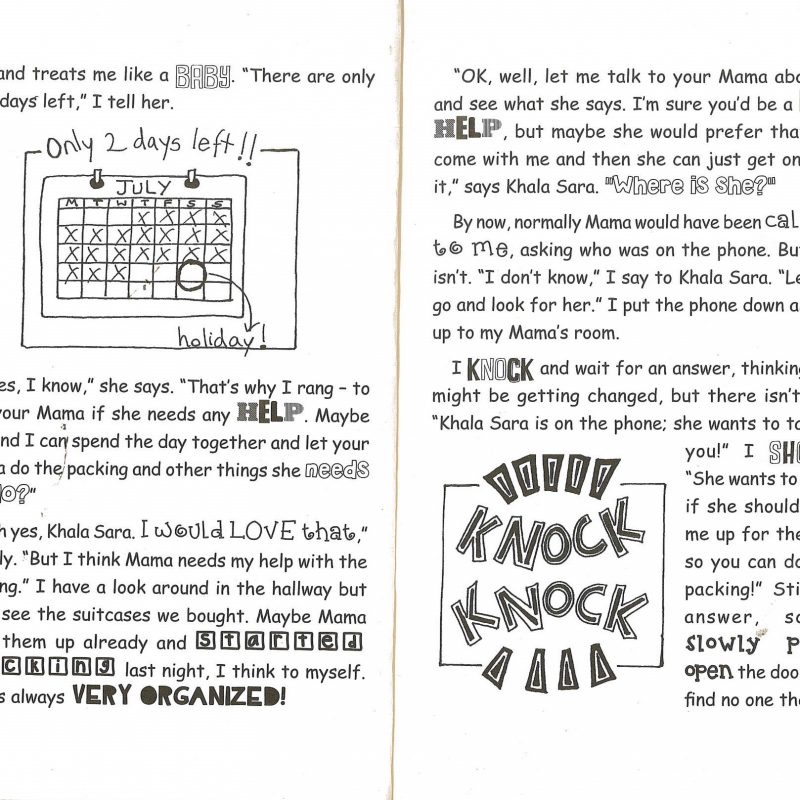 and treats me like a BABY. “There are only
days left,” I tell her.
Only 2 days left!!
JULY
M T W T F S S
X X X X
X X X X X X X
X X X X X X X
X X X
holiday!
es, I know,” she says. “That’s why I rang – to
your Mama if she needs any HELP. Maybe
nd I can spend the day together and let your
a do the packing and other things she needs
do?”
h yes, Khala Sara. I would LOVE that,”
ly. “But I think Mama needs my help with the
ng.” I have a look around in the hallway but
see the suitcases we bought. Maybe Mama
them up already and started
cking last night, I think to myself.
s always VERY ORGANIZED!
“OK, well, let me talk to your Mama abo
and see what she says. I’m sure you’d be a
HELP, but maybe she would prefer tha
come with me and then she can just get on
it,” says Khala Sara. "Where is she?"
By now, normally Mama would have been cal
to me, asking who was on the phone. But
isn’t. “I don’t know,” I say to Khala Sara. “Le
go and look for her.” I put the phone down a
up to my Mama’s room.
I KNOCK and wait for an answer, thinking
might be getting changed, but there isn’t
“Khala Sara is on the phone; she wants to ta
you!” I SHO
“She wants to
if she should
me up for the
so you can do
packing!” Sti
answer, so
slowly p
open the doo
find no one the
KNOCK
KNOCK